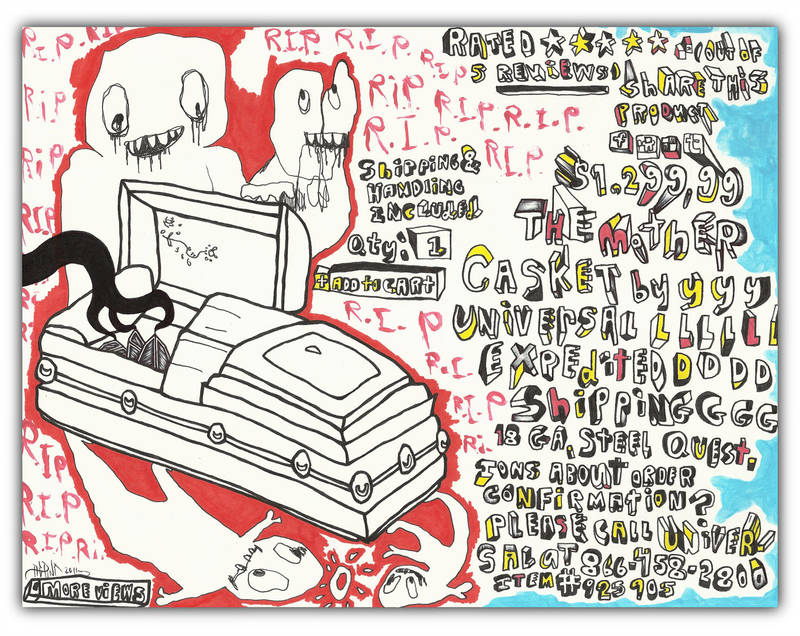 R.I.P. R.I.P. R.I.P. R.I.P.
R.I.P. R.I.P. R.I.P. R.I.P.
R.I.P. R.I.P.
RATED ★★★★★ OUT OF
5 REVIEWS)
SHARE THIS
PRODUCT
$1,299,99
SHIPPING &
HANDLING
INCLUDED
Qty: 1
+ ADD TO CART
THE MOTHER
CASKET by y y y
UNIVERSAL L L L L L
EXPEDITED D D D D
SHIPPING G G G
18 GA. STEEL QUEST.
IONS ABOUT ORDER
CONFIRMATION?
PLEASE CALL UNIVER-
SAL AT 866-458-2800
ITEM # 925905
R.I.P
R.I.P
R.I.P
R.I.P
R.I.P.
R.I.P.
2011
4 MORE VIEWS